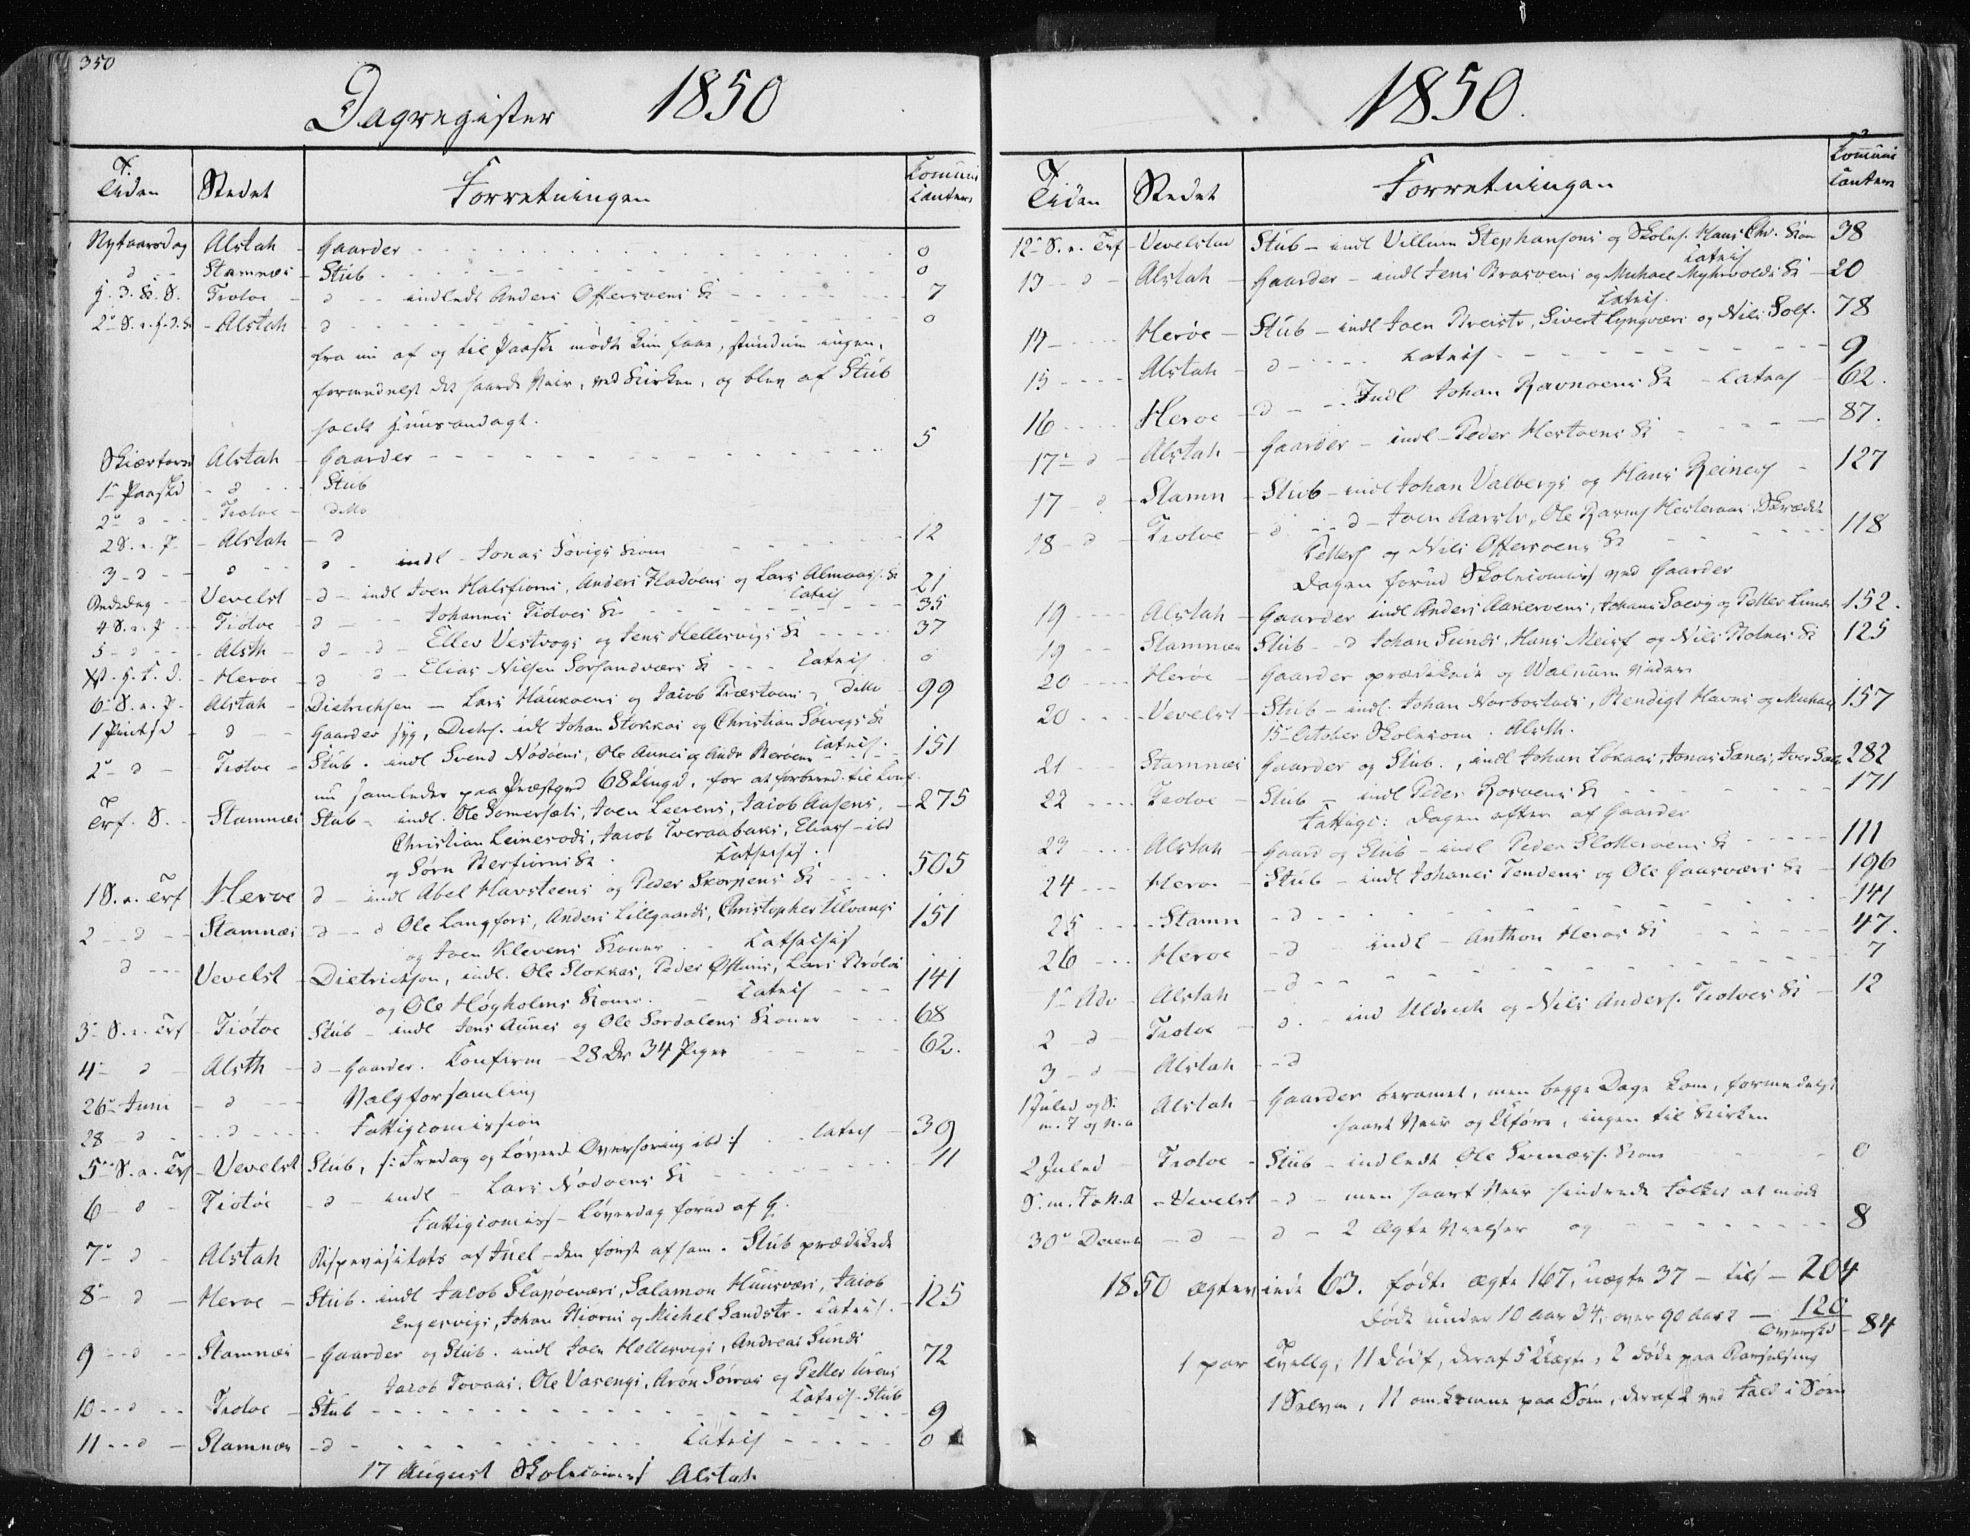 350
Dagregister 1850
Tiden Stedet Forretningen Communicanter
Nytaarsdag Alstah - Gaarder 0
d Stamnæs - Stub 0
H. 3. K. S. Tiotøe - d - indledt Anders Offersøens K 7
2 S. e. H. 3. K. - Alstah - d 0
fra nu af og til Paaske mødte kun faae, stundum ingen,
formedelst det haarde Veir, ved Kirken, og blev af Stub
holdt Huusandagt.
Skiærtorsd Alstah - Gaarder 5
1 Paasked - d - Stub
2 d - Tiotøe - ditto
2 S. e. P. - Alstah - d 12
3 - d - d - d - indl - Jonas Søvigs Kone
Bededag - Vevelst - d - indl Joen Halsfiorns, Anders Fladøens og Lars Almaas. K 21
4 S. e. P - Tiotøe - d - Johannes Tiotøes K Catech 35
5 - d - Alsth - d - d - Ellev Vestvogs og Jens Hellesvigs K 37
Xst. H. F. D. - Herøe - d d - Elias Nilsen Sørsandværs K Catech 0
6 S. e. P. Alstah - Dietrichsen - Lars Haukøens og Jacob Træstøens ditto 99
1 Pintsd - d - Gaarder syg, Dietr. idl Johan Stokkas og Christian Søevigs K
2 - d - Tiotøe - Stub. indl Svend Nødøens, Ole Aunes og Andr Berøens Catech. 151
nu samledes paa Præstgrd 68 Ungd. for at forbered. til Conf.
Trf. S. - Stamnæs Stub - indl. Ole Somersæts, Joen Leerens, Jacob Aasens, 275
Christian Leinesods, Jacob Tveraabaks, Elias - ibd
og Søren Nerfiorns K. Catechis.
1 S. e. Trf Herøe d - indl Abel Havsteens og Peder Skorpens K 505
2 - d - Stamnæs - d - d Ole Langsets, Anders Lillgaards, Christopher Ulvangs 151
og Joen Klevens Koner Catechis
d Vevelst - Dietrichsen, indl. Ole Stokkas, Peder Øftuns, Lars Brøløs 141
og Ole Høyholms Koner. - Catech
3 S. e. Trf - Tiøtøe Stub - indl Jens Aunes og Ole Sørdalens Koner 68
4 d - Alsth - d - Gaarder. Confirm - 28 Dr 34 Piger 62.
26 Juni - d - Valgforsamling
28 - d - d - Fattigcomission
5 S. e. Trf - Vevelst Stub, /: Fredag og Løverd Overhøring ibd :/ Catech - 39
6 - d - Tiøtøe - d - indl - Lars Nødøens K 11
Fattigcomiss - Løverdag forud af G.
7 d Alstah Bispevisitats af Juel - den første af ham. Stub prædikede
8 - d - Herøe - Stub. indl Jacob Slapøeværs, Salamon Huusværs, Jacob 125
Engesvigs, Johan Biørns og Michel Sandstr. - Catech.
9 - d - Stamnæs - Gaarder og Stub. indl Joen Hellesvigs, Andreas Sunds 72
Jacob Tovaas. Ole Vasengs, Arøn Sørras og Petter Urens
10 - d - Tiotøe - Stub Catech - Stub 9
11 - d - Stamnæs - d - Catech 0
17 August Skolecomiss Alstah.
1850.
Tiden Stedet Forretningen Communicanter
12 S. e. Trf - Vevelstad Stub - indl Villum Stephansens og Skoleh. Hans Chr. Kon 38
13 - d - Alstah - Gaarder - indl Jens Brasøens og Michael Myhrvolds K - Catech 20
14 Herøe - Stub - indl Joen Breistr, Sivert Lyngværs og Nils Solf. Catech. 78
15 Alstah - d - Catech 9
16 Herøe - d - Indl Johan Ravnøens K - Catech 62.
17 - d - Alstah - Gaarder - indl - Peder Hestøens K 87.
17 - d - Stamn - Stub - indl Johan Valbergs og Hans Reines 127
18 - d - Tiotøe - d - d - Joen Aarstr, Ole Rasms Hesteraas Skræder 118
Petters og Nils Offersøens K
Dagen forud Skolecomiss ved Gaarder
19 Alstah - Gaarder indl Anders Aakerøens, Johans Søevig og Petter Lunds 152.
19 Stamnæs Stub - d Johan Sunds, Hans Meisf og Nils Botnes K 125
20 Herøe - Gaarder prædikede og Walnum vidier
20 - Vevelst - Stub - indl. Johan Norbostads, Bendigt Havns og Michael 157
15 October Skolecom: Alsth.
21 Stamnæs Gaarder og Stub., indl Johan Løkaas, Jonas Sanes, Iver Sæl 282
22 Tiotøe - Stub - indl Peder Rosøens K 171
Fattigc: Dagen efter af Gaarder
23 Alstah - Gaard og Stub - indl Peder Slotterøens K 111
24 Herøe - Stub - indl Johannes Tendens og Ole Gaasværs K 196
25 - Stamn - d 141
26 Herøe - d indl - Anthon Herøes K 47.
1 Adv - Alstah - d 7
2 - d Tiotøe - d - ind Uldrich og Nils Anders. Tiotøes K 12
3 - d - Alstah - d
1 Juled og S. m. J og N.a Alstah - Gaarder beramet, men begge Dage kom, formedelst
haart Veir og Uføre, ingen til Kirken
2 Juled Tiotøe - Stub - indledt Ole Svenærs. Kone 0
S. m. J o N.a - Vevelst - d - men haart Veir hindrede Folket at møde
30 Decemb - d - d - 2 Ægte Vielser og 8
1850 ægteviede 63. fødte ægte 167, uægte 37 - tils - 204
døde under 10 aar 34, over 90 aar 2 - 120
Overskd - 84
1 par Tvillg, 11 dødf, deraf 5 Uægte, 2 døde paa Barselseng
1 Selvm, 11 omkomne paa Søen, deraf 2 ved Fald i Søen